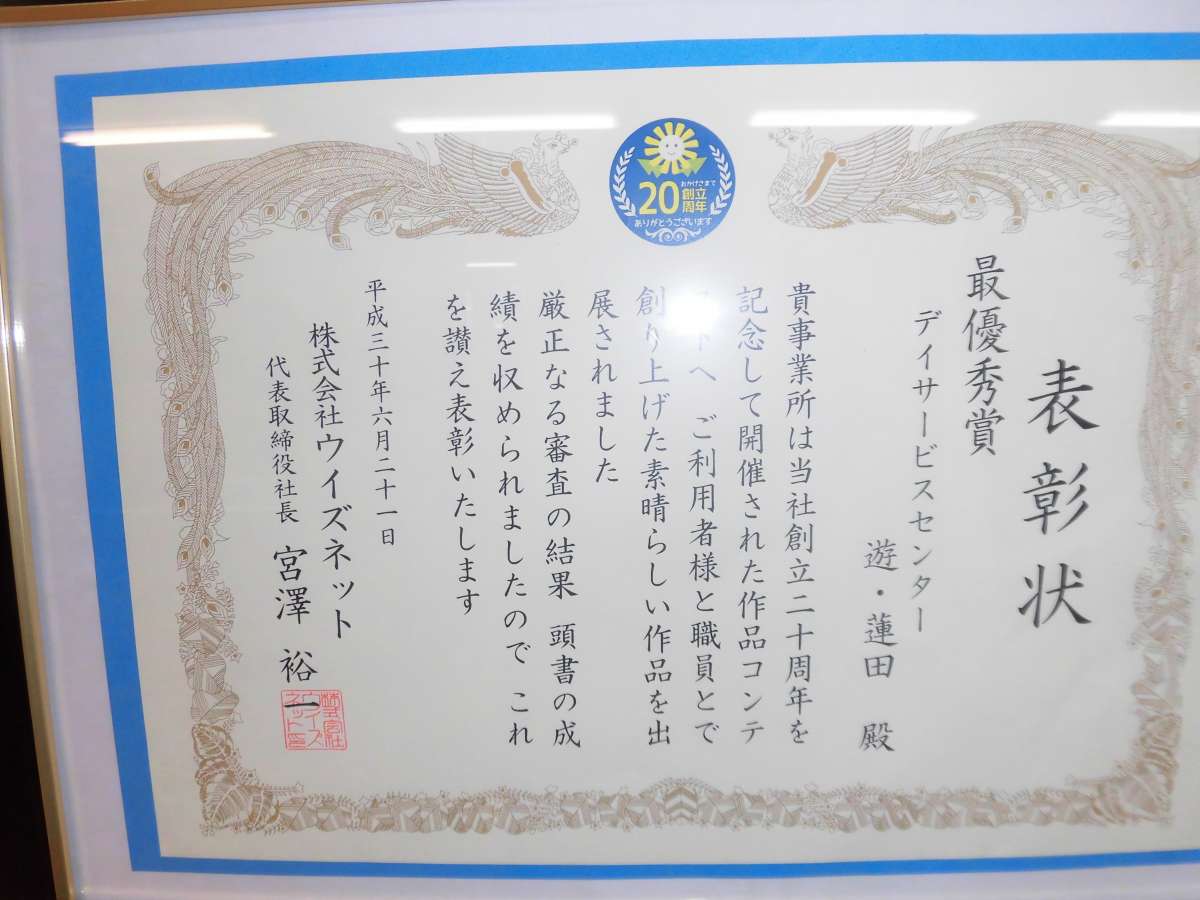 おかげさまで
20
創立
周年
ありがとうございます
表彰状
最優秀賞
デイサービスセンター
遊・蓮田 殿
貴事業所は当社創立二十周年を
記念して開催された作品コンテ
へ ご利用者様と職員とで
創り上げた素晴らしい作品を出
展されました
厳正なる審査の結果 頭書の成
績を収められましたので これ
を讃え表彰いたします
平成三十年六月二十一日
株式会社ウイズネット
代表取締役社長 宮澤 裕一
株式会社
ウイズ
ネット印